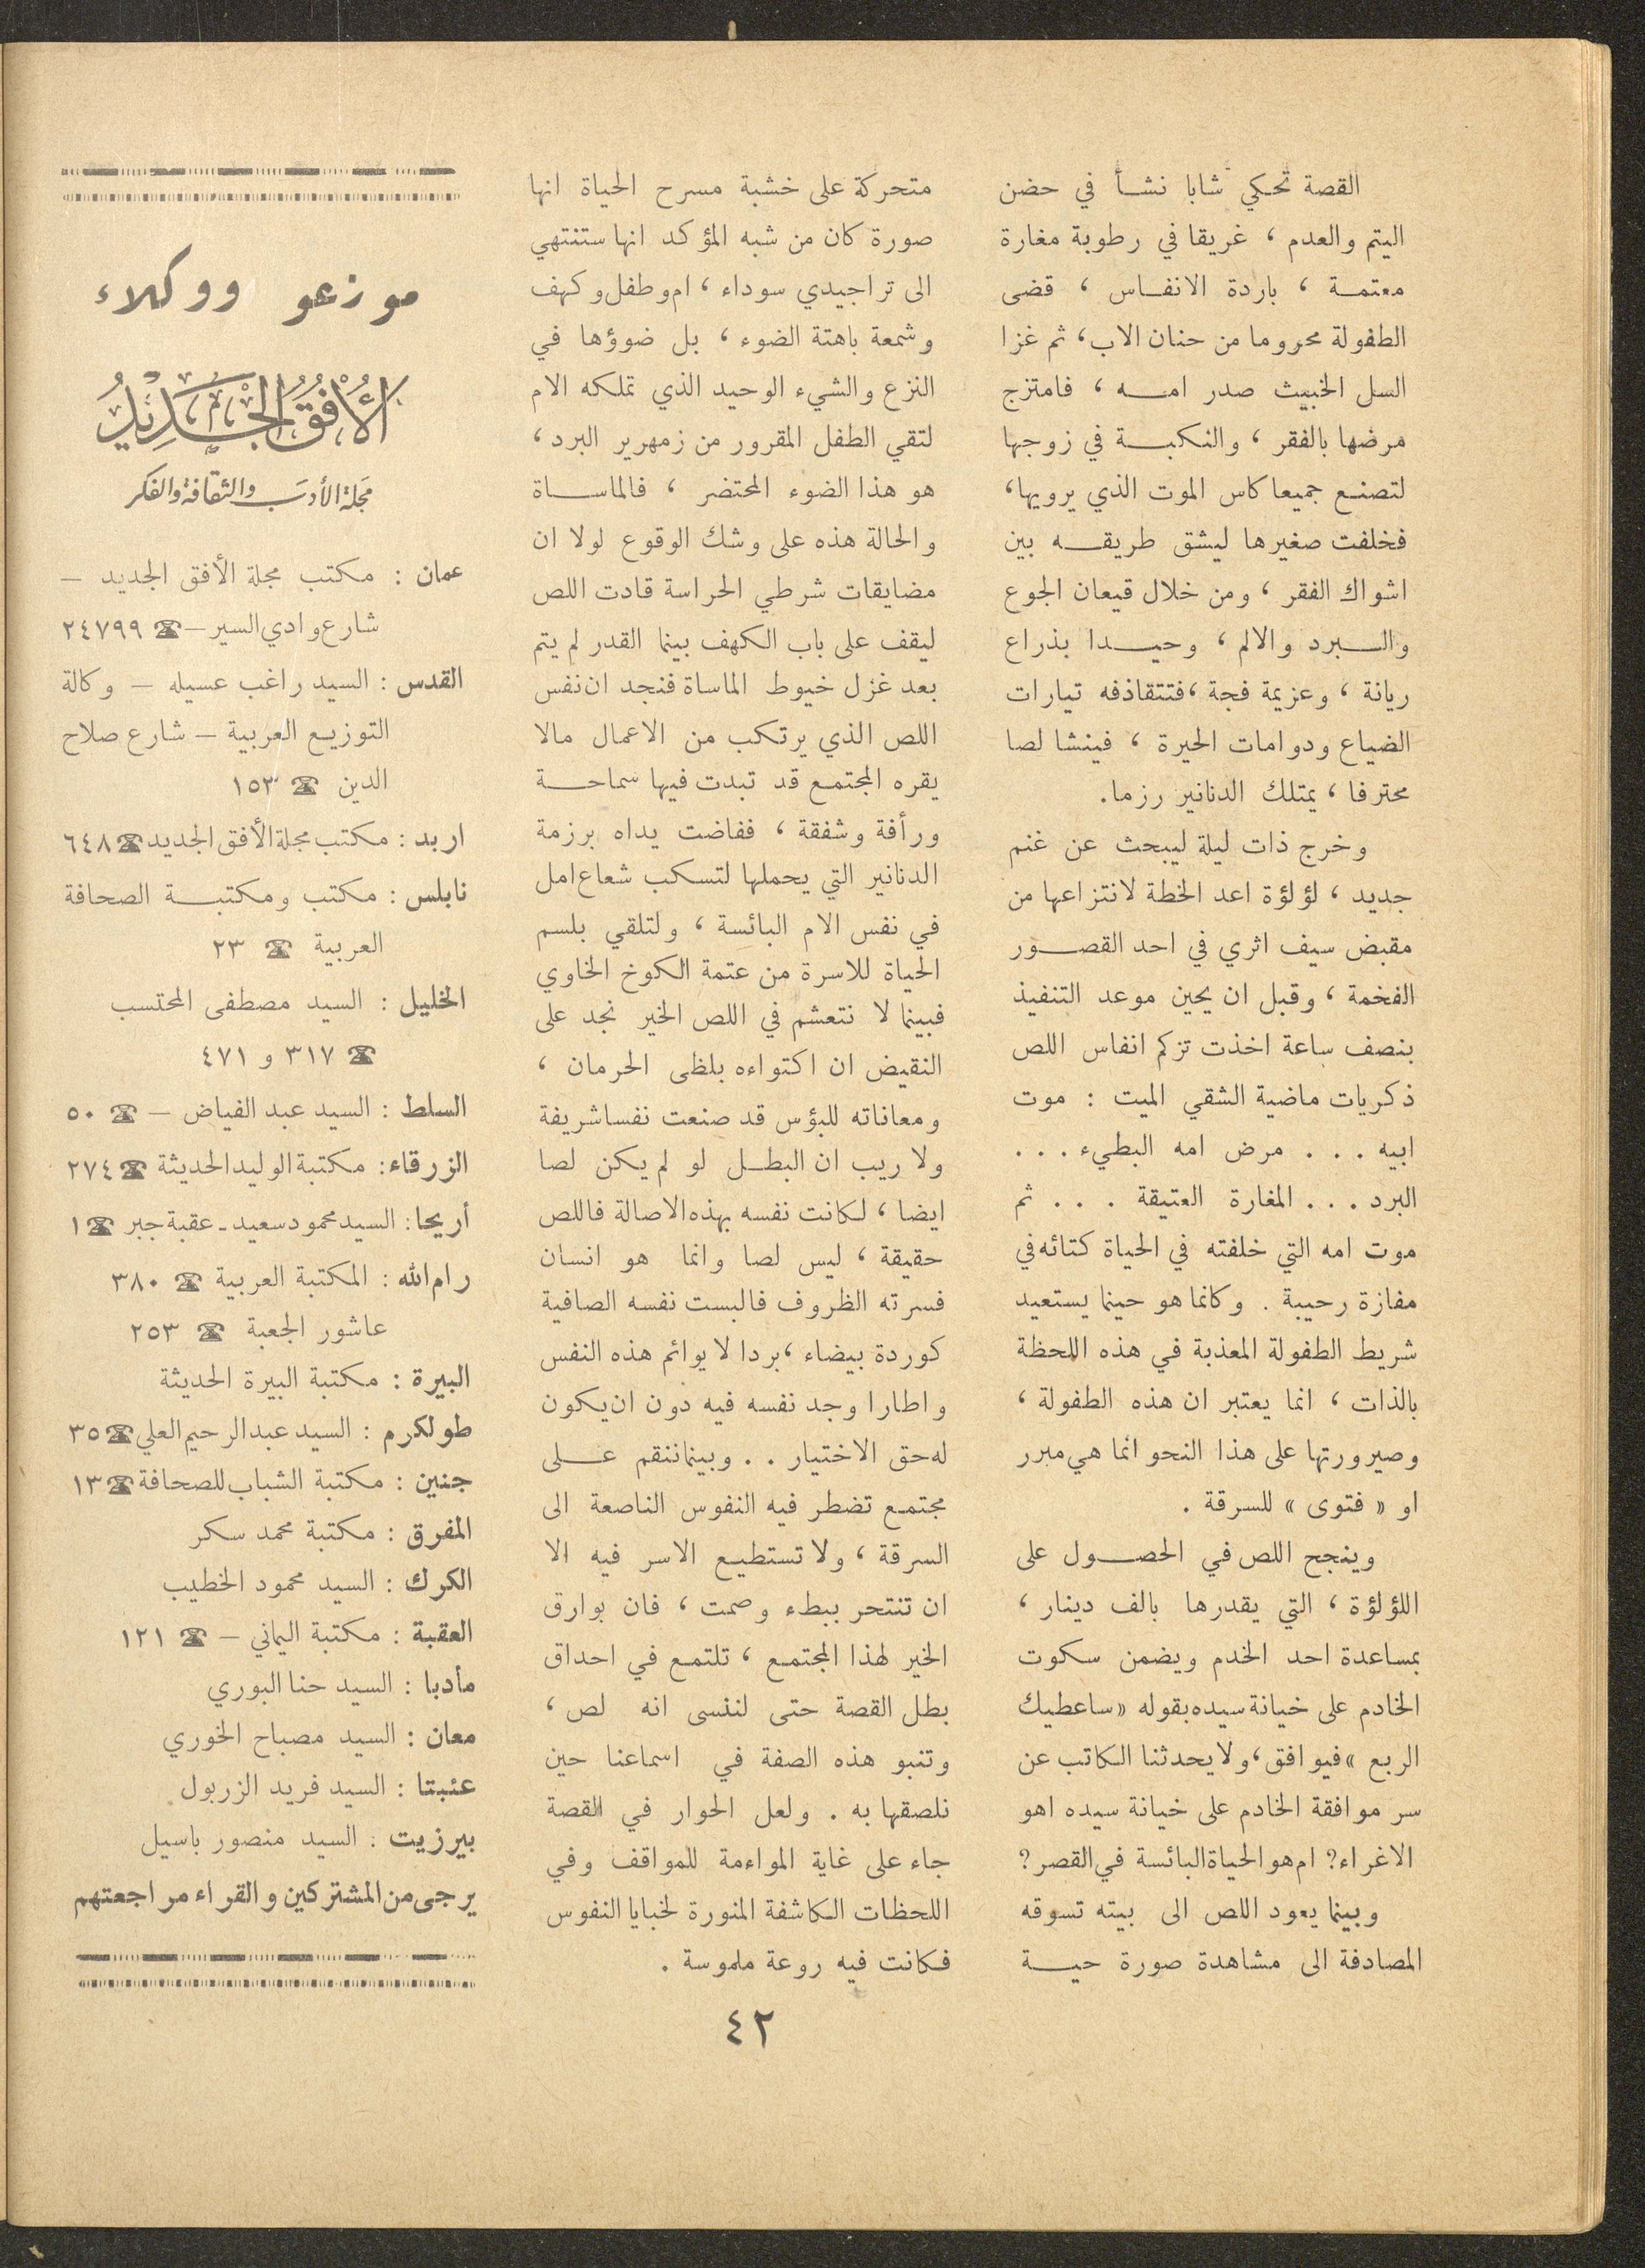 القصة تحكي شابا نشأ في حضن
اليتم والعدم ، غريقا في رطوبة مغارة
معتمة ، باردة الانفاس ، قضى
الطفولة محروما من حنان الاب ، ثم غزا
السل الخبيث صدر امه ، فامتزج
مرضها بالفقر ، والنكبة في زوجها
لتصنع جميعا كاس الموت الذي يرويها ،
فخلفت صغيرها ليشق طريقه بين
اشواك الفقر ، ومن خلال قيعان الجوع
والبرد والالم ، وحيدا بذراع
ريانة ، وعزيمة فجة ، فتتقاذفه تيارات
الضياع ودوامات الحيرة ، فينشا لصا
محترفا ، يمتلك الدنانير رزما.
وخرج ذات ليلة ليبحث عن غنم
جديد ، لؤلؤة اعد الخطة لانتزاعها من
مقبض سيف اثري في احد القصور
الفخمة ، وقبل ان يحين موعد التنفيذ
بنصف ساعة اخذت تزكم انفاس اللص
ذكريات ماضية الشقي الميت : موت
ابيه . . . مرض امه البطيء . . .
البرد . . . المغارة العتيقة . . . ثم
موت امه التي خلفته في الحياة كتائه في
مفازة رحيبة . وكانما هو حينما يستعيد
شريط الطفولة المعذبة في هذه اللحظة
بالذات ، انما يعتبر ان هذه الطفولة ،
وصيرورتها على هذا النحو انما هي مبرر
او « فتوى » للسرقة .
وينجح اللص في الحصول على
اللؤلؤة ، التي يقدرها بالف دينار ،
بمساعدة احد الخدم ويضمن سكوت
الخادم على خيانة سيده بقوله « ساعطيك
الربع » فيوافق ، ولا يحدثنا الكاتب عن
سر موافقة الخادم على خيانة سيده اهو
الاغراء؟ ام هو الحياة البائسة في القصر؟
وبينما يعود اللص الى بيته تسوقه
المصادفة الى مشاهدة صورة حية
متحركة على خشبة مسرح الحياة انها
صورة كان من شبه المؤكد انها ستنتهي
الى تراجيدي سوداء ، ام وطفل وكهف
وشمعة باهتة الضوء ، بل ضوؤها في
النزع والشيء الوحيد الذي تملكه الام
لتقي الطفل المقرور من زمهرير البرد ،
هو هذا الضوء المحتضر ، فالماساة
والحالة هذه على وشك الوقوع لولا ان
مضايقات شرطي الحراسة قادت اللص
ليقف على باب الكهف بينما القدر لم يتم
بعد غزل خيوط الماساة فنجد ان نفس
اللص الذي يرتكب من الاعمال مالا
يقره المجتمع قد تبدت فيها سماحة
ورأفة وشفقة ، ففاضت يداه برزمة
الدنانير التي يحملها لتسكب شعاع امل
في نفس الام البائسة ، ولتلقي بلسم
الحياة للاسرة من عتمة الكوخ الخاوي
فبينما لا نتعشم في اللص الخير نجد على
النقيض ان اكتواءه بلظى الحرمان ،
ومعاناته للبؤس قد صنعت نفسا شريفة
ولا ريب ان البطل لو لم يكن لصا
ايضا ، لكانت نفسه بهذه الاصالة فاللص
حقيقة ، ليس لصا وانما هو انسان
فسرته الظروف فالبست نفسه الصافية
كوردة بيضاء ، بردا لا يوائم هذه النفس
واطارا وجد نفسه فيه دون ان يكون
له حق الاختيار . . وبينما ننقم على
مجتمع تضطر فيه النفوس الناصعة الى
السرقة ، ولا تستطيع الاسر فيه الا
ان تنتحر ببطء وصمت ، فان بوارق
الخير لهذا المجتمع ، تلتمع في احداق
بطل القصة حتى لننسى انه لص ،
وتنبو هذه الصفة في اسماعنا حين
نلصقها به . ولعل الحوار في القصة
جاء على غاية المواءمة للمواقف وفي
اللحظات الكاشفة المنورة لخبايا النفوس
فكانت فيه روعة ملموسة .
موزعو ووكلاء
الأفق الجديد
مجلة الأدب والثقافة والفكر
عمان : مكتب مجلة الأفق الجديد —
شارع وادي السير — ☎ ٢٤٧٩٩
القدس : السيد راغب عسيله — وكالة
التوزيع العربية — شارع صلاح
الدين ☎ ١٥٢
اربد : مكتب مجلة الأفق الجديد ☎ ٦٤٨
نابلس : مكتب ومكتبة الصحافة
العربية ☎ ٢٣
الخليل : السيد مصطفى المحتسب
☎ ٣١٧ و ٤٧١
السلط : السيد عبد الفياض — ☎ ٥٠
الزرقاء : مكتبة الوليد الحديثة ☎ ٢٧٤
أريحا : السيد محمود سعيد - عقبة جبر ☎ ١
رام الله : المكتبة العربية ☎ ٣٨٠
عاشور الجعبة ☎ ٢٥٣
البيرة : مكتبة البيرة الحديثة
طولكرم : السيد عبد الرحيم العلي ☎ ٣٥
جنين : مكتبة الشباب للصحافة ☎ ١٣
المفرق : مكتبة محمد سكر
الكرك : السيد محمود الخطيب
العقبة : مكتبة اليماني — ☎ ١٢١
مأدبا : السيد حنا البوري
معان : السيد مصباح الخوري
عنبتا : السيد فريد الزربول
بيرزيت : السيد منصور باسيل
يرجى من المشتركين والقراء مراجعتهم
٤٢